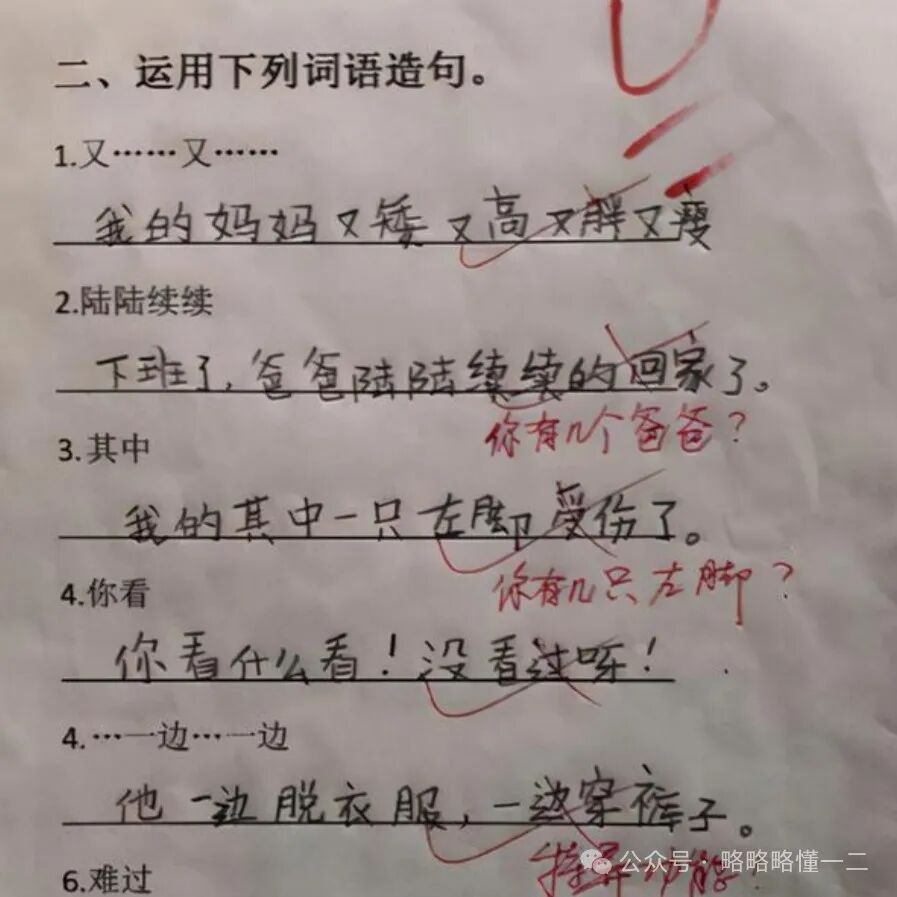 二、运用下列词语造句。
1.又……又……
我的妈妈又矮又高又胖又瘦
2.陆陆续续
下班了,爸爸陆陆续续的回家了。
你有几个爸爸?
3.其中
我的其中一只左脚受伤了。
你有几只左脚?
4.你看
你看什么看!没看过呀!
4.…一边…一边
他一边脱衣服,一边穿裤子。
公众号·略略略懂一二
6.难过